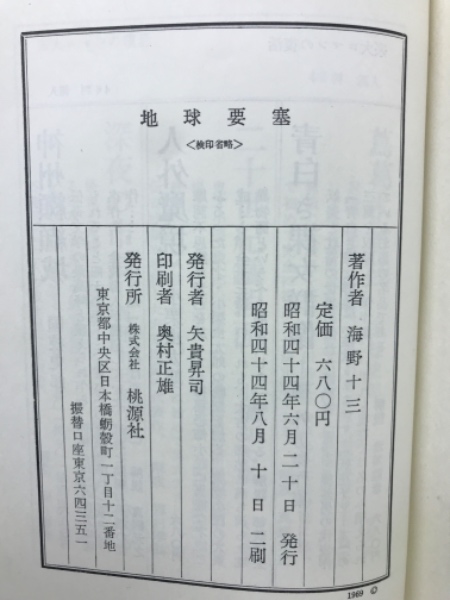 地球要塞
<検印省略>
著作者 海野十三
定価 六八〇円
昭和四十四年六月二十日 発行
昭和四十四年八月 十 日 二刷
発行者 矢貴昇司
印刷者 奥村正雄
発行所 株式会社 桃源社
東京都中央区日本橋蛎殻町一丁目十二番地
振替口座東京六四三五一
1969 ©